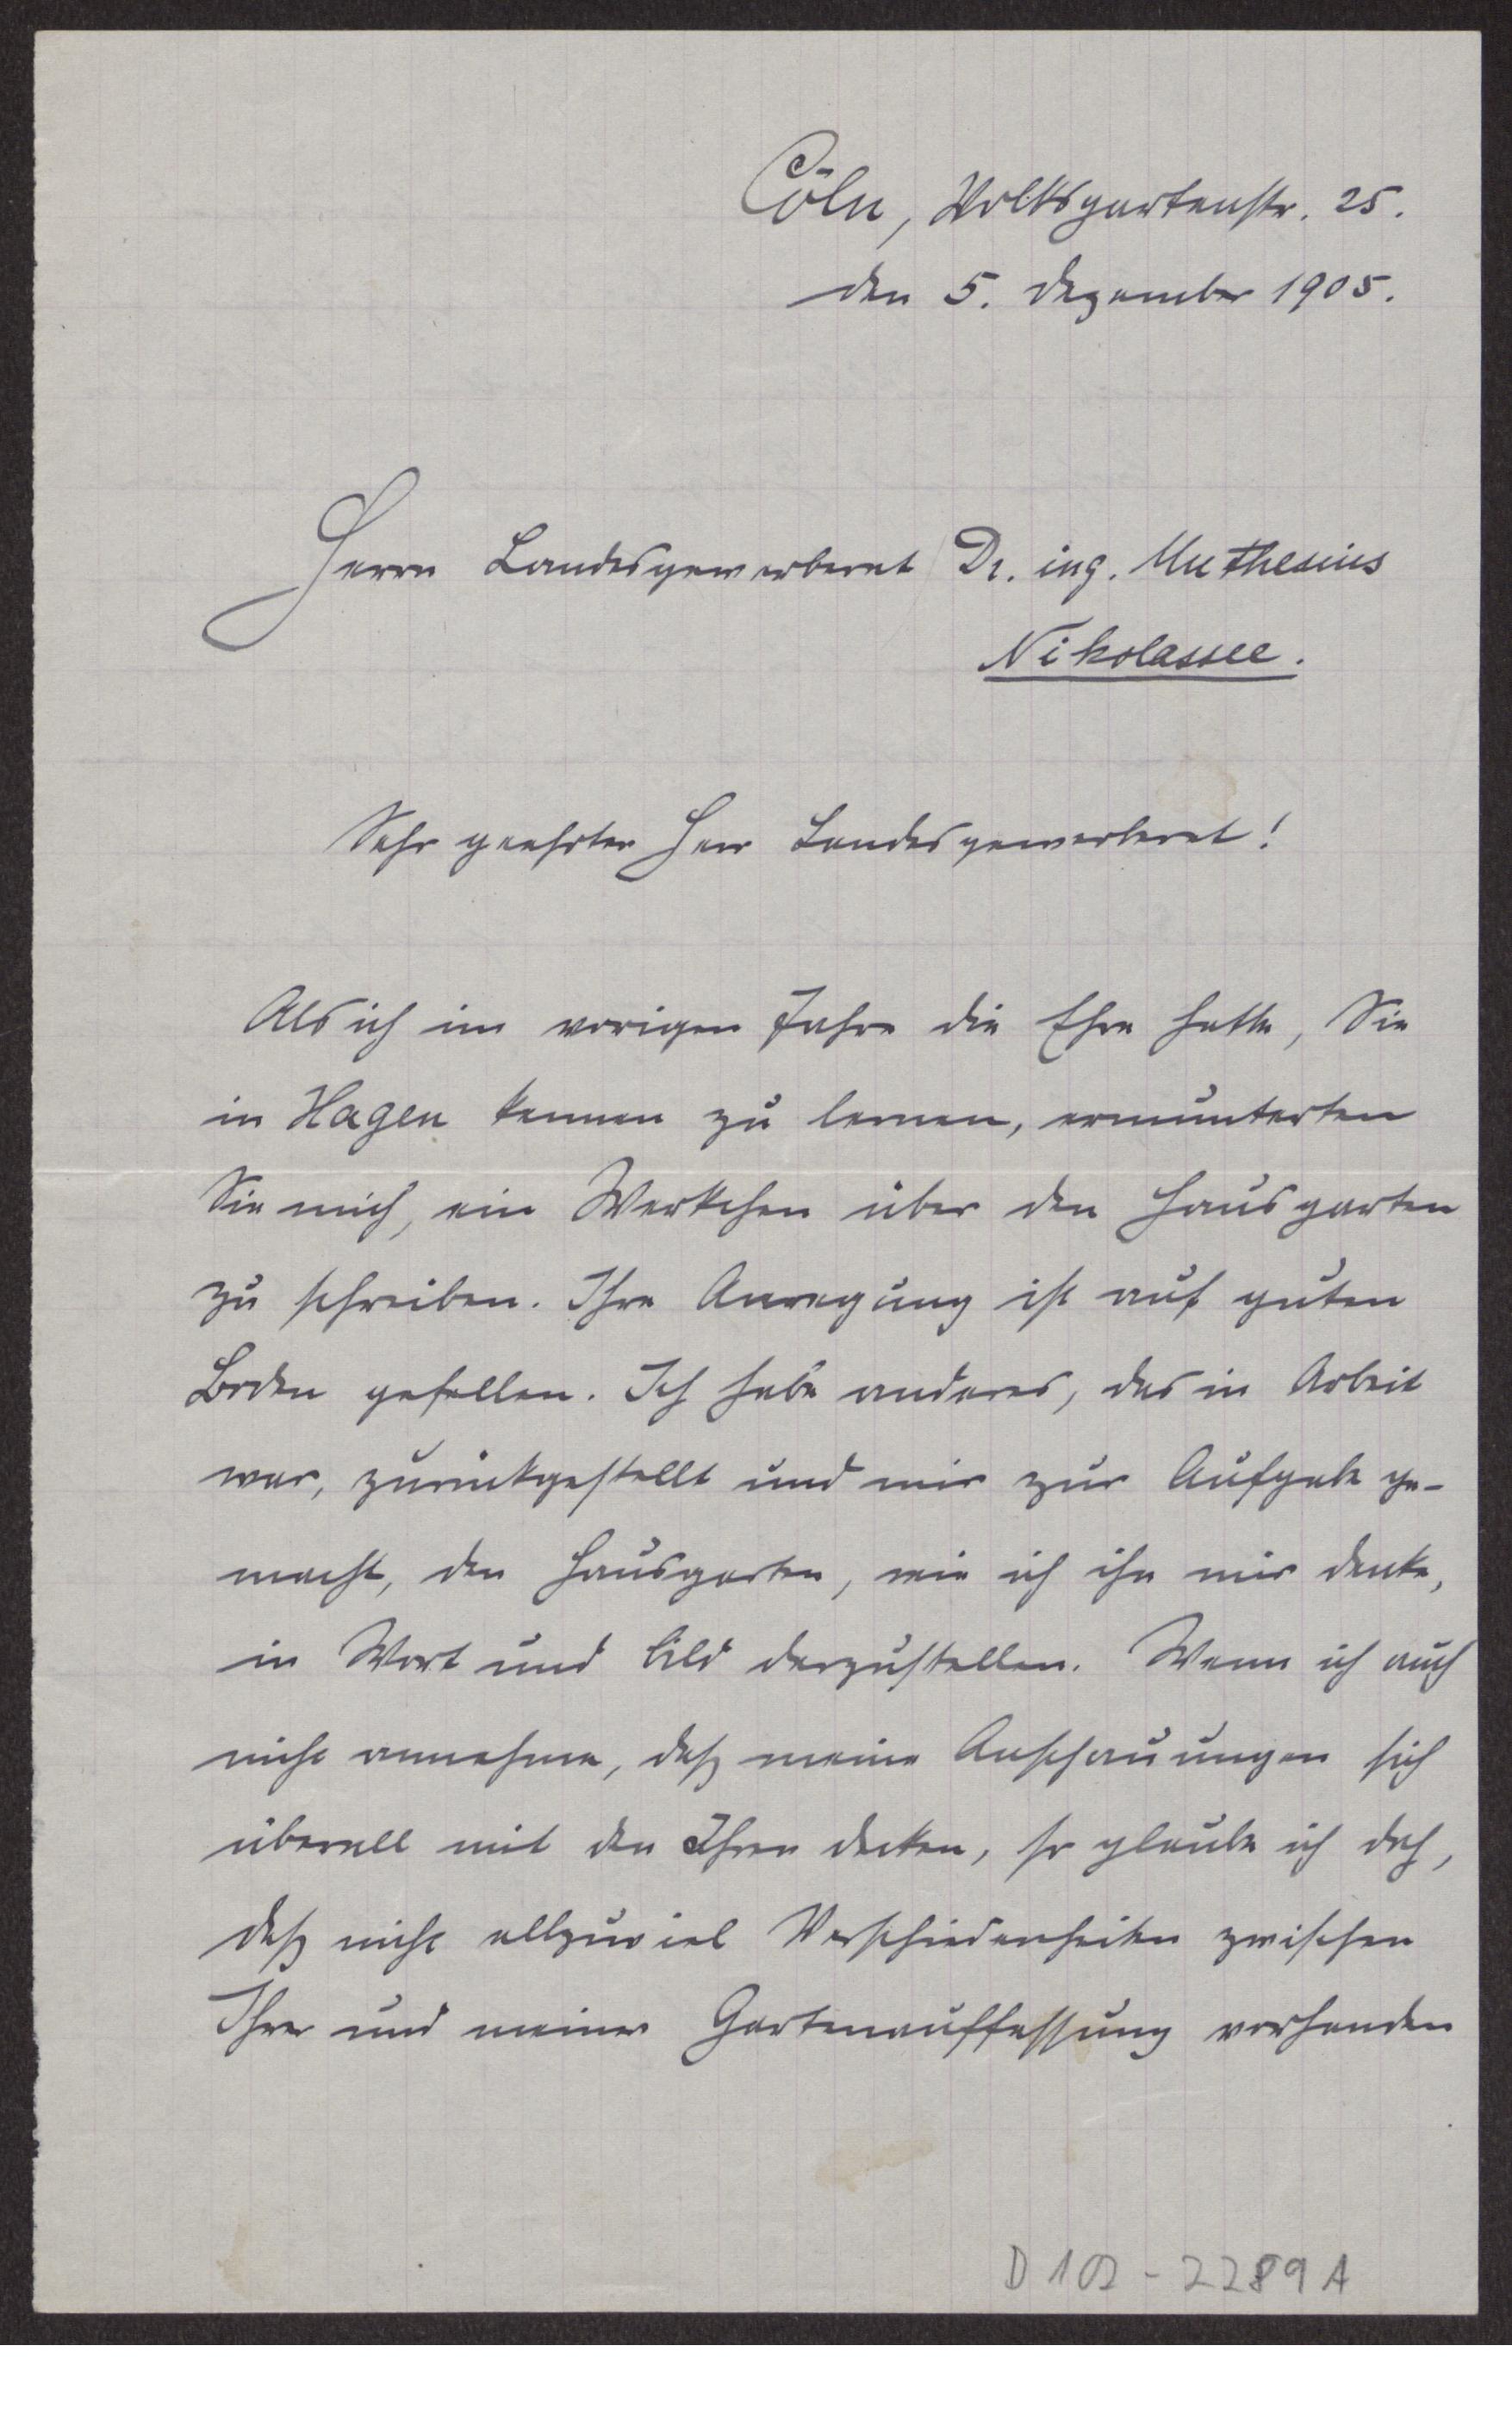 Cöln, Volksgartenstr. 25.
den 5. Dezember 1905.
Herrn Landesgewerberat Dr. ing. Muthesius
Nikolassee.
Sehr geehrter Herr Landesgewerberat!
Als ich im vorigen Jahre die Ehre hatte, Sie
in Hagen kennen zu lernen, ermunterten
Sie mich, ein Werkchen über den Hausgarten
zu schreiben. Ihre Anregung ist auf guten
Boden gefallen. Ich habe anderes, das in Arbeit
war, zurückgestellt und mir zur Aufgabe ge-
macht, den Hausgarten, wie ich ihn mir denke,
in Wort und Bild darzustellen. Wenn ich auch
nicht annehme, daß meine Anschauungen sich
überall mit den Ihren decken, so glaube ich doch,
daß nicht allzuviel Verschiedenheiten zwischen
Ihrer und meiner Gartenauffassung vorhanden
D 102 - 2289 A